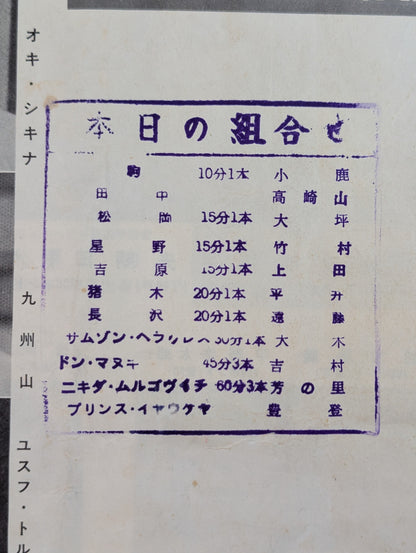 オキ・シキナ
九州山
ユスフ・トル
本日の組合せ
駒 10分1本 小鹿
田中 高崎山
松岡 15分1本 大坪
星野 15分1本 竹村
吉原 15分1本 上田
猪木 20分1本 平井
長沢 20分1本 遠藤
サムソン・ヘラクレス 30分1本 大木
ドン・マヌキ 45分3本 吉村
ニキタ・ムルゴヴイチ 60分3本 芳の里
プリンス・イヤウケヤ 豊登